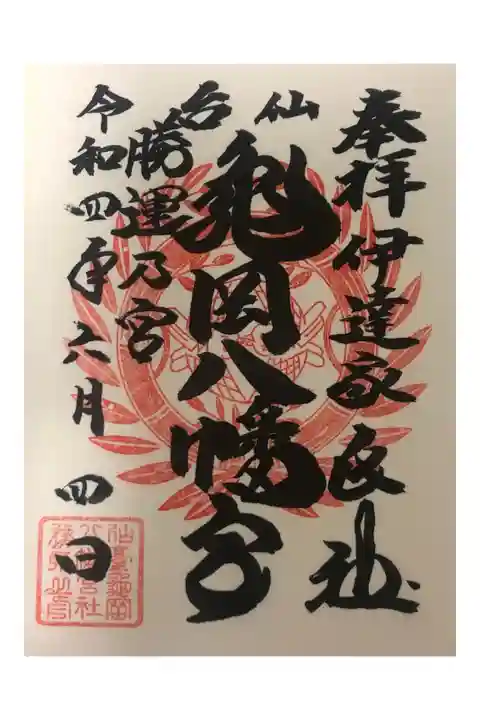 奉拝 伊達家氏社
仙台
亀岡八幡宮
勝運乃宮
令和四年六月四日